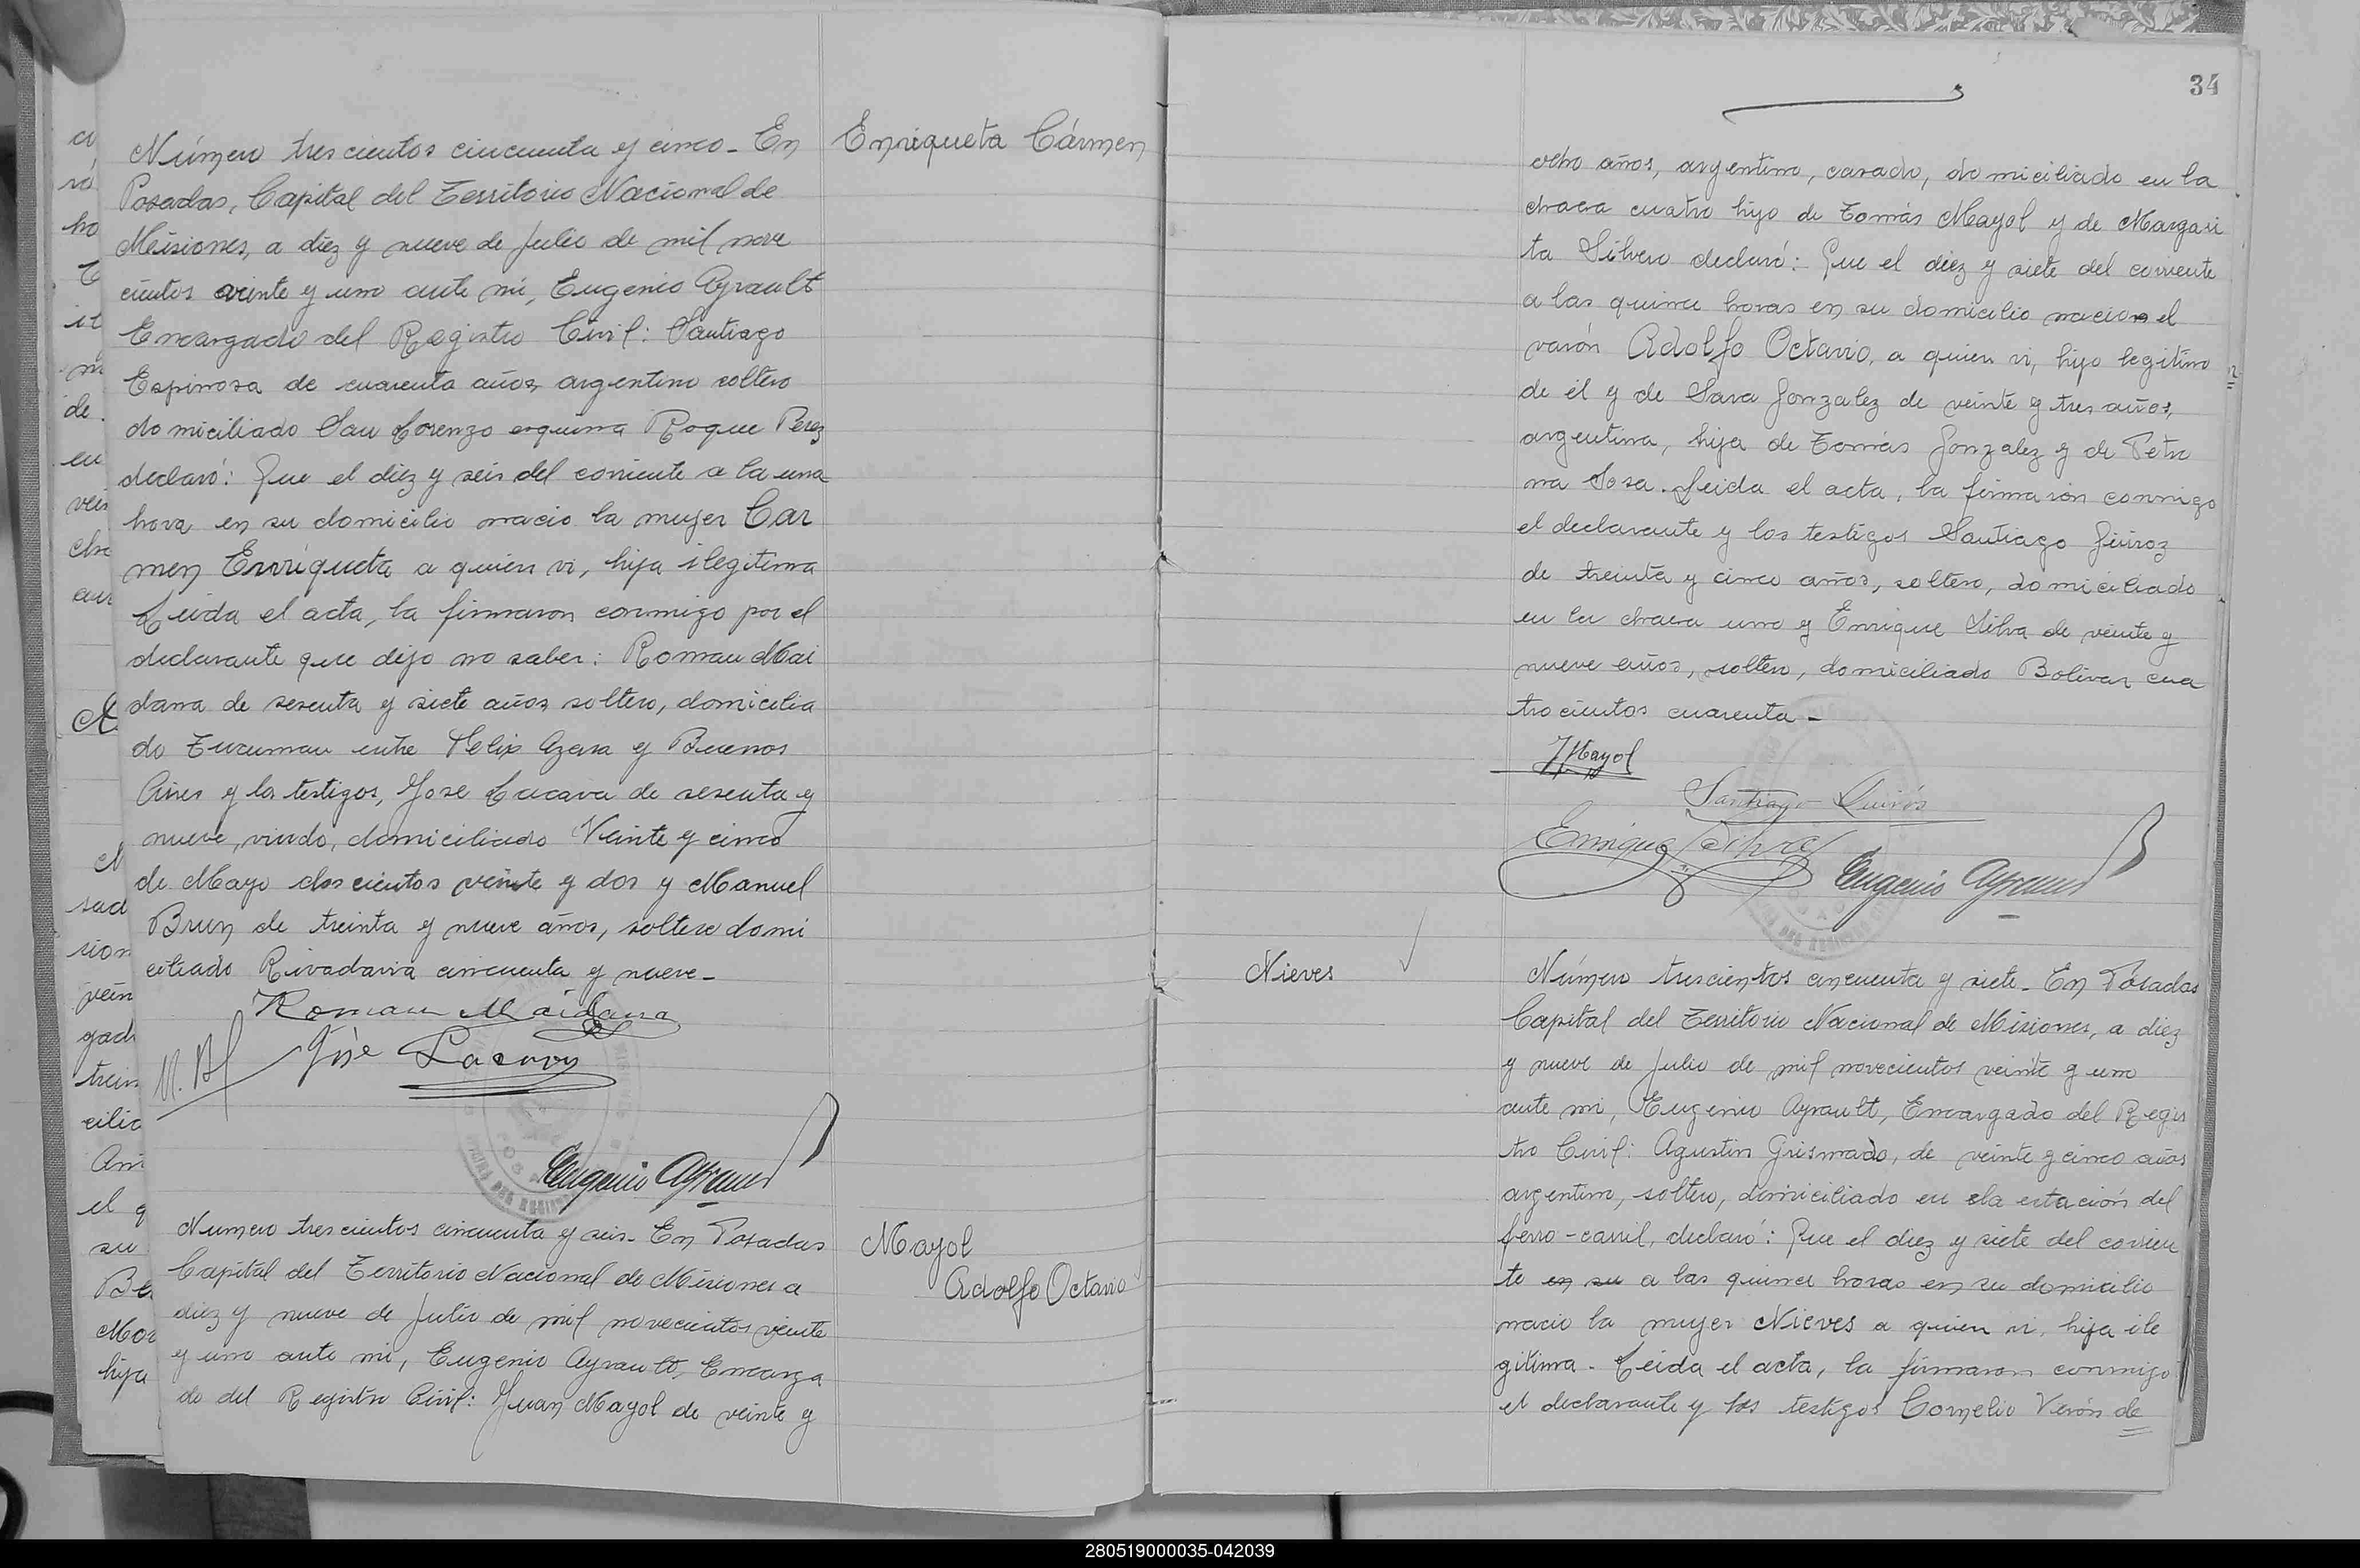 Número trescientos cincuenta y cinco - En
Posadas, Capital del Territorio Nacional de
Misiones, a diez y nueve de Julio de mil nove
cientos veinte y uno ante mi, Eugenio Ayrault
Encargado del Registro Civil: Santiago
Espinosa de cuarenta años argentino soltero
domiciliado San Lorenzo esquina Roque Perez
declaró: Que el diez y seis del corriente a la una
hora en su domicilio nacio la mujer Car
men Enriqueta a quien vi, hija ilegitima
Leida el acta, la firmaron conmigo por el
declarante que dijo no saber: Roman Mai
dana de sesenta y siete años soltero, domicilia
do Tucuman entre Felix Azara y Buenos
Aires y los testigos, Jose Lacava de sesenta y
nueve, viudo, domiciliado Veinte y cinco
de Mayo doscientos veinte y dos y Manuel
Brun de treinta y nueve años, soltero domi
ciliado Rivadavia cincuenta y nueve -
Roman Maidana
José Lacava
Eugenio Ayrault
Enriqueta Cármen
Numero trescientos cincuenta y seis - En Posadas
Capital del Territorio Nacional de Misiones a
diez y nueve de Julio de mil novecientos veinte
y uno ante mi, Eugenio Ayrault, Encarga
do del Registro Civil: Juan Mayol de veinte y
Mayol
Adolfo Octavio
34
ocho años, argentino, casado, domiciliado en la
chacra cuatro hijo de Tomás Mayol y de Margari
ta Silvero declaró: Que el diez y siete del corriente
a las quince horas en su domicilio nacio el
varón Adolfo Octavio, a quien vi, hijo legitimo
de él y de Sara Gonzalez de veinte y tres años,
argentina, hija de Tomás Gonzalez y de Petro
na Sosa. Leida el acta, la firmaron conmigo
el declarante y los testigos Santiago Quiroz
de treinta y cinco años, soltero, domiciliado
en la chacra uno y Enrique Silva de veinte y
nueve años, soltero, domiciliado Bolivar cua
trocientos cuarenta -
J Mayol
Santiago Quirós
Enrique Silva
Eugenio Ayrault
Nieves
Número trescientos cincuenta y siete - En Posadas
Capital del Territorio Nacional de Misiones, a diez
y nueve de Julio de mil novecientos veinte y uno
ante mi, Eugenio Ayrault, Encargado del Regis
tro Civil: Agustin Grismado, de veinte y cinco años
argentino, soltero, domiciliado en la estación del
ferro-carril, declaró: Que el diez y siete del corrien
te en su a las quince horas en su domicilio
nacio la mujer Nieves a quien vi, hija ile
gitima - Leida el acta, la firmaron conmigo
el declarante y los testigos Cornelio Verón de
280519000035-042039